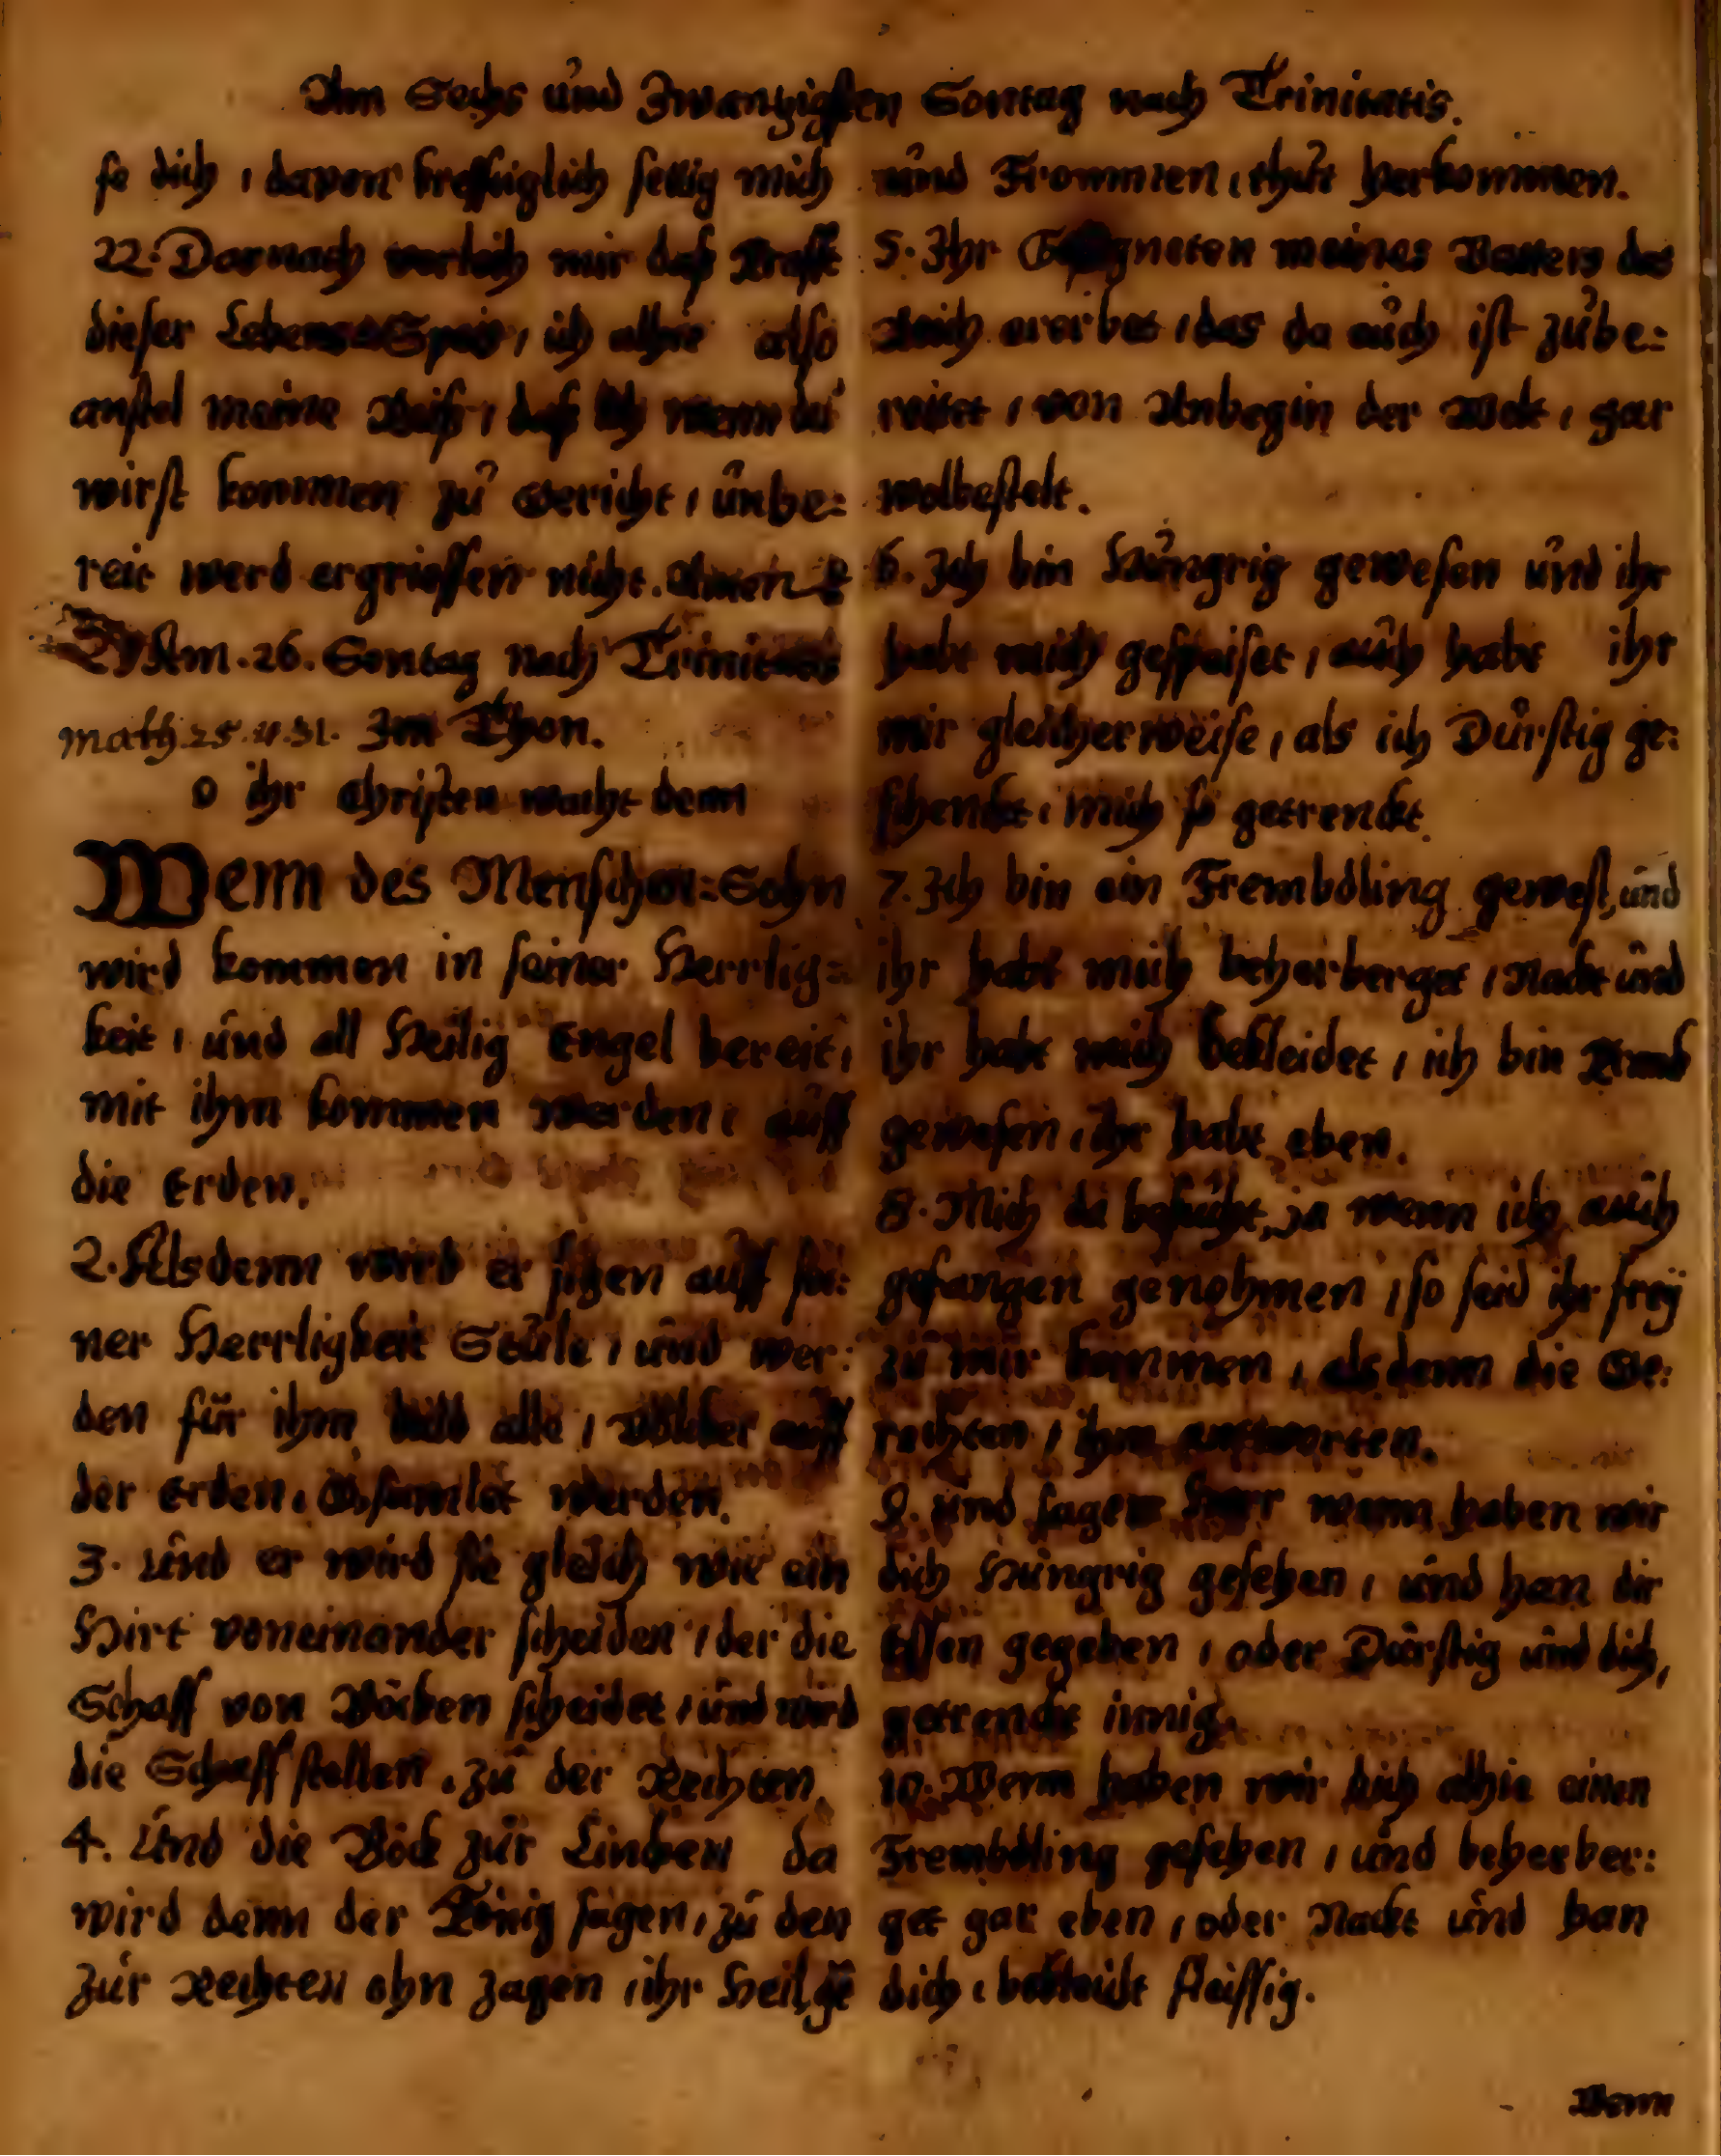 Am Sechs und Zwantzigsten Sontag nach Trinitatis.
se dich, davon krefftiglich settig mich
22. Darnach verleih mir daß Krafft
dieser Lebens Speis, ich alhie also
anstel meine Reiß, daß ich wenn du
wirst kommen zu Gericht, unbe-
reit werd ergrieffen nicht. Amen
Am. 26. Sontag nach Trinitatis
math. 25. v. 31. Im Thon.
O ihr Christen wacht denn
Wenn des Menschen-Sohn
wird kommen in seiner Herrlig-
keit, und all Heilig Engel bereit,
mit ihm kommen werden, auff
die Erden.
2. Alsdenn wird er sitzen auff sei-
ner Herrligkeit Stule, und wer-
den für ihm bald alle, Völcker auff
der Erden, Gsamlet werden.
3. Und er wird sie gleich wie ein
Hirt voneinander scheiden, der die
Schaff von Böcken scheidet, und wird
die Schaff stellen, zu der Rechten.
4. Und die Böck zur Lincken da
wird denn der König sagen, zu den
zur Rechten ohn zagen, ihr Heilge
und Frommen, thut herkommen.
5. Ihr Gesegneten meines Vatters das
Reich ererbet, das da auch ist zube-
reitet, von Anbegin der Welt, gar
wolbestelt.
6. Ich bin Hungrig gewesen und ihr
habt mich gespeiset, auch habt ihr
mir gleicherweise, als ich Dürstig ge-
schenckt, mich so getrenckt.
7. Ich bin ein Frembdling gewest, und
ihr habt mich beherberget, Nackt und
ihr habt mich bekleidet, ich bin Kranck
gewesen, ihr habt eben.
8. Mich da besucht, ja wenn ich auch
gefangen genohmen, so seid ihr frey
zu mir kommen, alsdenn die Ge-
rechten, ihm antworten.
9. und sagen Herr wenn haben wir
dich Hungrig gesehen, und han dir
Essen gegeben, oder Dürstig und dich,
getrenckt innig.
10. Wenn haben wir dich alhie einen
Frembdling gesehen, und beherber-
get gar eben, oder Nackt und han
dich, bekleidt fleissig.
Wenn